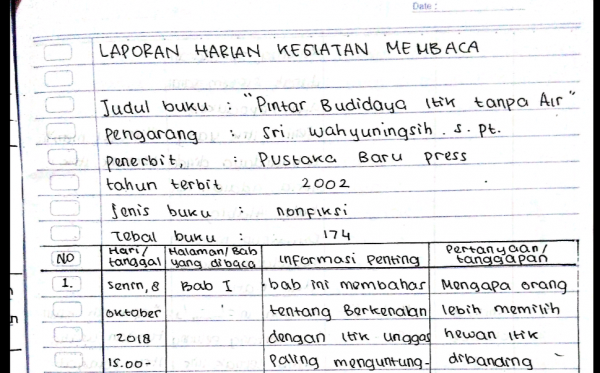 Date :
LAPORAN HARIAN KEGIATAN MEMBACA
Judul buku : "Pintar Budidaya Itik tanpa Air"
Pengarang : Sri wahyuningsih . S. Pt.
Penerbit, : Pustaka Baru press
tahun terbit 2002
Jenis buku : nonfiksi
Tebal buku : 174
NO Hari/ tanggal Halaman/Bab yang dibaca informasi Penting Pertanyaan/ tanggapan
1. Senin, 8 Bab I bab ini membahas Mengapa orang
oktober tentang Berkenalan lebih memilih
2018 dengan itik unggas hewan itik
15.00- Paling menguntung- dibanding